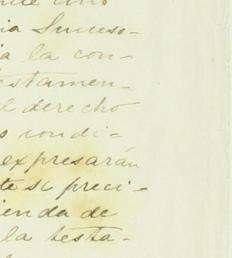 uno
ia Suceso-
a la con-
estamen-
l derecho
s condi-
expresarán
te si preci-
ienda de
la testa-